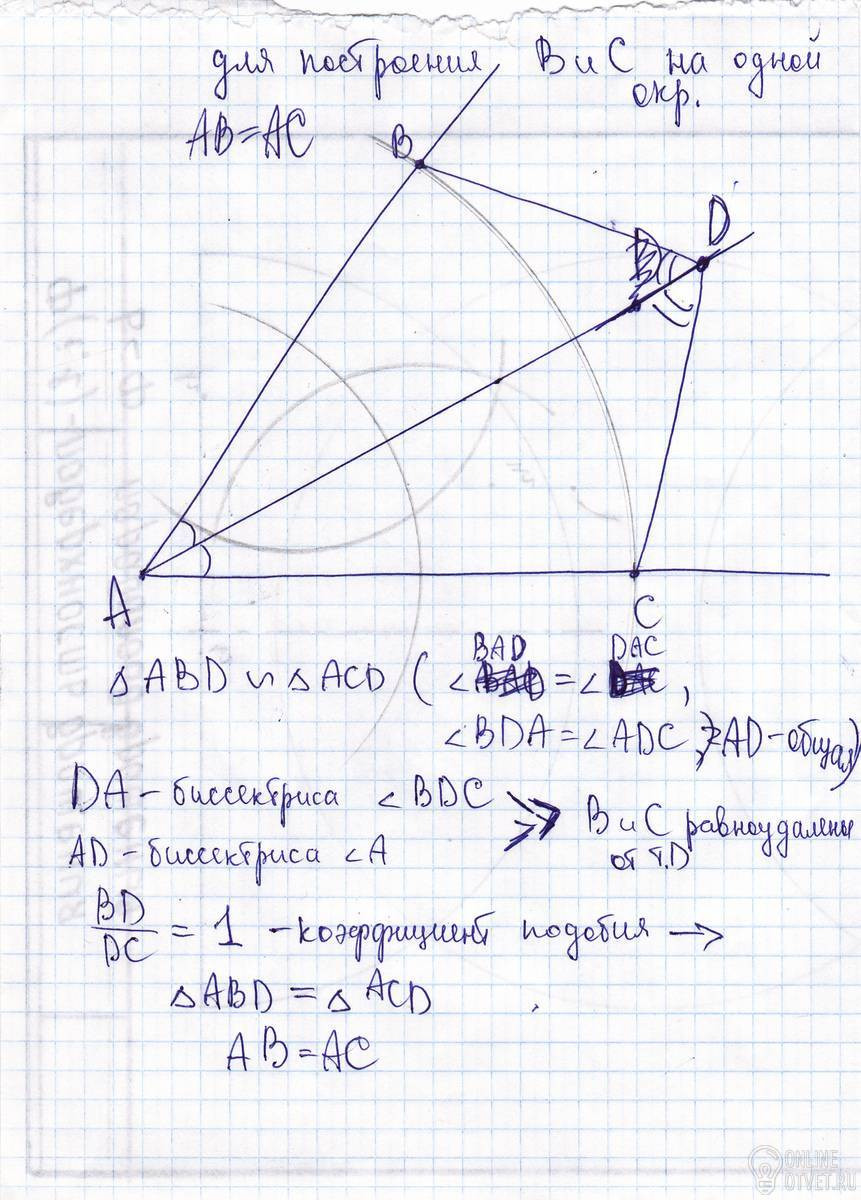 для построения В и С на одной
окр.
AB=AC
B
D
A
C
△ABD ∽ △ACD ( ∠BAD = ∠DAC,
∠BDA = ∠ADC, AD - общая)
DA - биссектриса ∠BDC
AD - биссектриса ∠A
B и C равноудалены
от т.D
BD
DC
= 1 - коэффициент подобия →
△ABD = △ACD
AB = AC
ONLINE
OTVET.RU